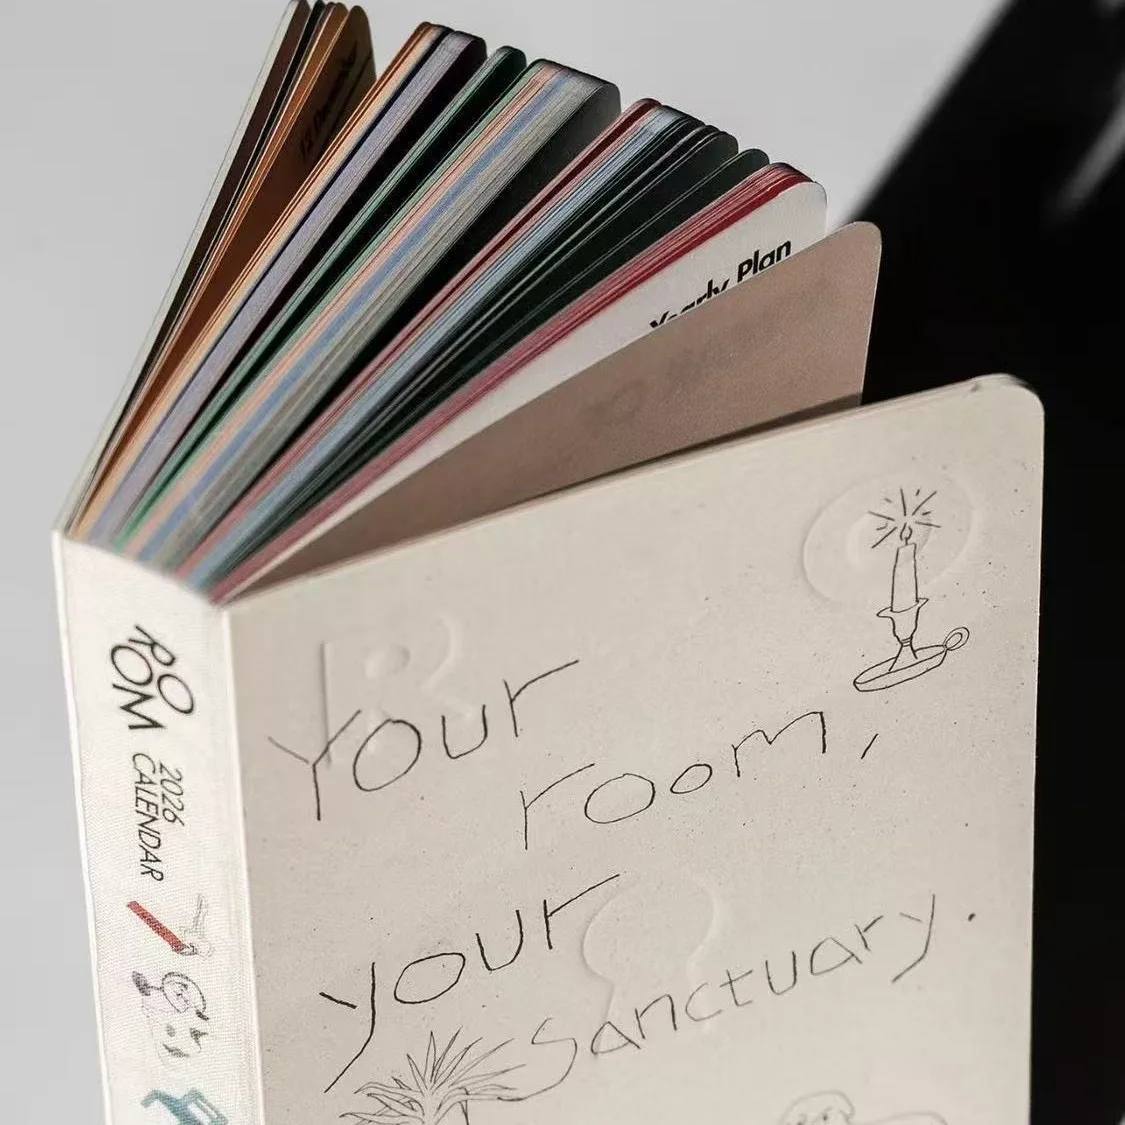 12 December
Yearly Plan
ROOM
2026
CALENDAR
Your
room,
your
Sanctuary.